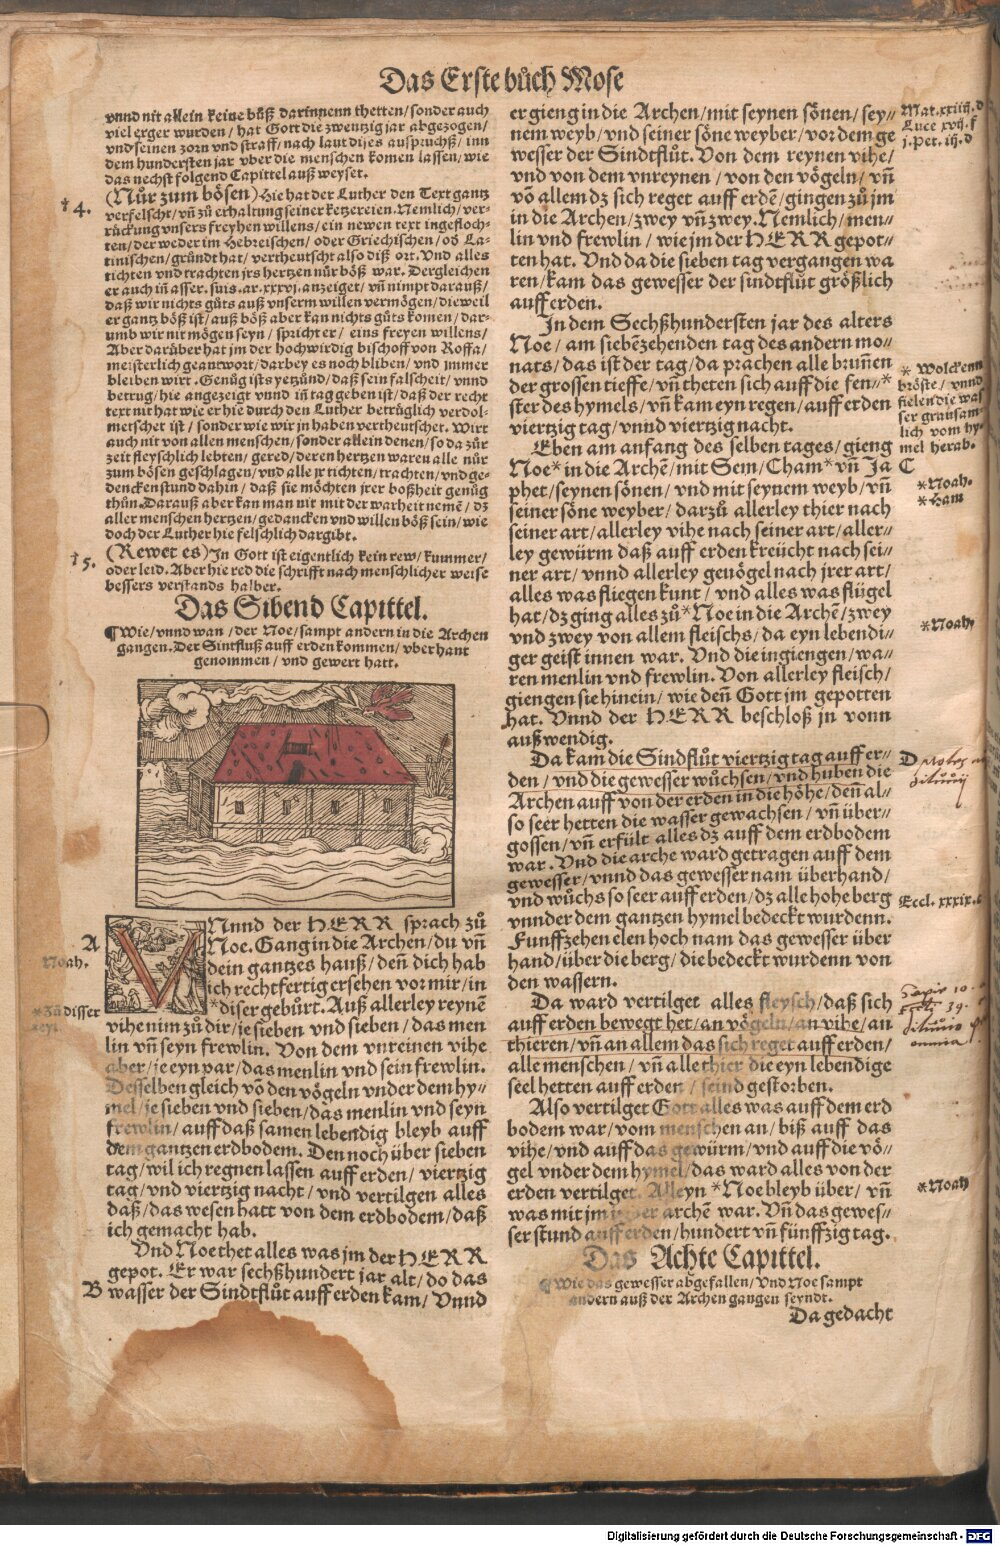 Das Erste bůch Mose
vnnd nit allein keine bůß darinnenn thetten/sonder auch
viel erger wurden/hat Gott die zwentzig jar abgezogen/
vnd seinen zorn vnd straff/nach laut dises außpruchs/inn
dem hundersten jar vber die menschen komen lassen/wie
das nechst folgend Capittel auß weyset.
†4.
(Nůr zum bösen) Hie hat der Luther den Text gantz
verfelscht/vñ zů erhaltung seiner ketzereien. Nemlich/ver-
rückung vnsers freyhen willens/ein newen text ingefloch-
ten/der weder im Hebreischen/oder Griechischen/oď La-
tinischen/gründt hat/vertheutscht also diß ort. Vnd alles
tichten vnd trachten jrs hertzen nůr böß war. Dergleichen
er auch iñ asser. suis. ar. xxxvj. anzeiget/vñ nimpt darauß/
daß wir nichts gůts auß vnserm willen vermögen/dieweil
er gantz böß ist/auß böß aber kan nichts gůts komen/dar-
umb wir nit mögen seyn/spricht er/eins freyen willens/
Aber darüber hat jm der hochwirdig bischoff von Roffa/
meisterlich geantwort/darbey es noch bliben/vnd jmmer
bleiben wirt. Genůg ists yetzünd/daß sein falscheit/vnnd
betrug/hie angezeigt vnnd iñ tag geben ist/daß der recht
text nit hat wie er hie durch den Luther betrůglich verdol-
metschet ist/sonder wie wir jn haben vertheutschet. Wirt
auch nit von allen menschen/sonder allein denen/so da zůr
zeit fleyschlich lebten/gered/deren hertzen waren alle nůr
zum bösen geschlagen/vnd alle jr tichten/trachten/vnd ge-
dencken stund dahin/daß sie möchten jrer boßheit genůg
thůn. Darauß aber kan man nit mit der warheit nemẽ/dz
aller menschen hertzen/gedancken vnd willen böß sein/wie
doch der Luther hie felschlich dargibt.
†5.
(Rewet es) In Gott ist eigentlich kein rew/kummer/
oder leid. Aber hie red die schrifft nach menschlicher weise
bessers verstands halber.
Das Sibend Capittel.
¶Wie/vnnd wan/der Noe/sampt andern in die Archen
gangen. Der Sintfluß auff erden kommen/vberhant
genommen/vnd gewert hatt.
A
Noah.
*Zů disser
VNnnd der HERR sprach zů
Noe. Gang in die Archen/du vñ
dein gantzes hauß/deñ dich hab
ich rechtfertig ersehen vor mir/in
*diser gebůrt. Auß allerley reynẽ
vihe nim zů dir/je sieben vnd sieben/das men
lin vñ seyn frewlin. Von dem vnreinen vihe
aber/je eyn par/das menlin vnd sein frewlin.
Desselben gleich võ den vögeln vnder dem hy-
mel/je sieben vnd sieben/das menlin vnd seyn
frewlin/auff daß samen lebendig bleyb auff
dem gantzen erdbodem. Den noch über sieben
tag/wil ich regnen lassen auff erden/viertzig
tag/vnd viertzig nacht/vnd vertilgen alles
daß/das wesen hatt von dem erdbodem/daß
ich gemacht hab.
Vnd Noe thet alles was jm der HERR
gepot. Er war sechßhundert jar alt/do das
B
wasser der Sindtflůt auff erden kam/Vnnd
er gieng in die Archen/mit seynen sönen/sey-
nem weyb/vnd seiner söne weyber/vor dem ge
wesser der Sindtflůt. Von dem reynen vihe/
vnd von dem vnreynen/von den vögeln/vñ
võ allem dz sich reget auff erdẽ/gingen zů jm
in die Archen/zwey vñ zwey. Nemlich/men-
lin vnd frewlin/wie jm der HERR gepot-
ten hat. Vnd da die sieben tag vergangen wa
ren/kam das gewesser der sindtflůt größlich
auff erden.
In dem Sechßhundersten jar des alters
Noe/am siebẽzehenden tag des andern mo-
nats/das ist der tag/da prachen alle brunñen
der grossen tieffe/vñ theten sich auff die fen-*
ster des hymels/vñ kam eyn regen/auff erden
viertzig tag/vnnd viertzig nacht.
Eben am anfang des selben tages/gieng
Noe* in die Archẽ/mit Sem/Cham* vñ Ja
phet/seynen sönen/vnd mit seynem weyb/vñ
seiner söne weyber/darzů allerley thier nach
seiner art/allerley vihe nach seiner art/aller-
ley gewürm daß auff erden kreücht nach sei-
ner art/vnnd allerley geuögel nach jrer art/
alles was fliegen kunt/vnd alles was flügel
hat/dz ging alles zů* Noe in die Archẽ/zwey
vnd zwey von allem fleischs/da eyn lebendi-
ger geist innen war. Vnd die ingiengen/wa-
ren menlin vnd frewlin. Von allerley fleisch/
giengen sie hinein/wie deñ Gott jm gepotten
hat. Vnnd der HERR beschloß jn vonn
außwendig.
Da kam die Sindflůt viertzig tag auff er-
den/vnd die gewesser wůchsen/vnd huben die
Archen auff von der erden in die höhe/deñ al-
so seer hetten die wasser gewachsen/vñ über-
gossen/vñ erfült alles dz auff dem erdbodem
war. Vnd die arche ward getragen auff dem
gewesser/vnnd das gewesser nam überhand/
vnd wůchs so seer auff erden/dz alle hohe berg
vnnder dem gantzen hymel bedeckt wurdenn.
Funffzehen elen hoch nam das gewesser über
hand/über die berg/die bedeckt wurdenn von
den wassern.
Da ward vertilget alles fleysch/daß sich
auff erden bewegt het/an vögeln/an vihe/an
thieren/vñ an allem das sich reget auff erden/
alle menschen/vñ alle thier die eyn lebendige
seel hetten auff erden/seind gestorben.
Also vertilget Gott alles was auff dem erd
bodem war/vom menschen an/biß auff das
vihe/vnd auff das gewürm/vnd auff die vö-
gel vnder dem hymel/das ward alles von der
erden vertilget. Alleyn *Noe bleyb über/vñ
was mit jm in der archẽ war. Vñ das gewes-
ser stund auff erden/hundert vñ fünffzig tag.
Das Achte Capittel.
¶Wie das gewesser abgefallen/Vnd Noe sampt
andern auß der Archen gangen seyndt.
Da gedacht
Mat. xxiiij. d
Luce xvij. f
j. Pet. iij. d
* Wolckenn
bröste/vnnd
fielen die was
ser grausam-
lich vom hy-
mel herab.
C
*Noah.
*Ham
*Noah
D
Eccl. xxxix. c
*Noah
Digitalisierung gefördert durch die Deutsche Forschungsgemeinschaft - DFG